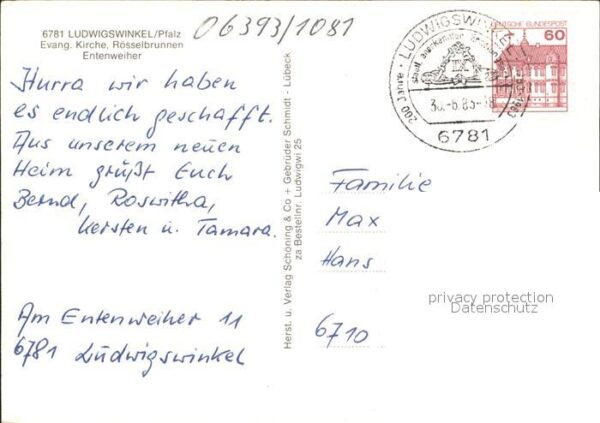 6781 LUDWIGSWINKEL/Pfalz
Evang. Kirche, Rösselbrunnen
Entenweiher
06393/1081
Hurra wir haben
es endlich geschafft.
Aus unserem neuen
Heim grüßt Euch
Bernd, Roswitha,
Kersten u. Tamara.
Am Entenweiher 11
6781 Ludwigswinkel
Herst. u. Verlag Schöning & Co + Gebrüder Schmidt - Lübeck
za Bestellnr. Ludwigwi 25
LUDWIGSWINKEL
200 Jahre
staatl. anerkannter
6781
DEUTSCHE BUNDESPOST
60
Familie
Max
Hans
6710
privacy protection
Datenschutz